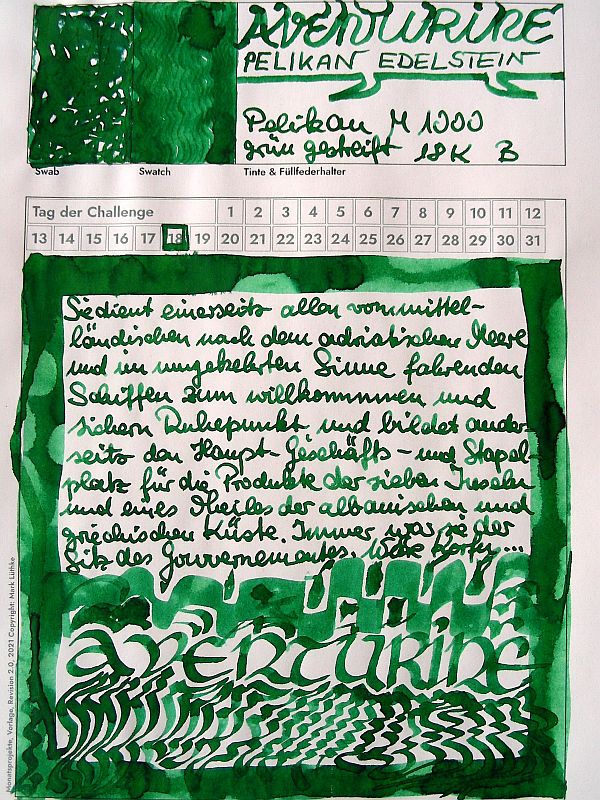 AVENTURINE
PELIKAN EDELSTEIN
Pelikan M 1000
grün gestreift 18K B
Swab
Swatch
Tinte & Füllfederhalter
Tag der Challenge 1 2 3 4 5 6 7 8 9 10 11 12
13 14 15 16 17 18 19 20 21 22 23 24 25 26 27 28 29 30 31
Sie dient einerseits allen vom mittel-
ländischen nach dem adriatischen Meere
und im umgekehrten Sinne fahrenden
Schiffen zum willkommenen und
sichern Ruhepunkt und bildet ander-
seits den Haupt-Geschäfts- und Stapel-
platz für die Produkte der sieben Inseln
und eines Theiles der albanischen und
griechischen Küste. Immer war sie der
Sitz des Gouvernementes. Korfu...
AVENTURINE
Monatsprojekte, Vorlage, Revision 2.0, 2021 Copyright: Mark Lüthke